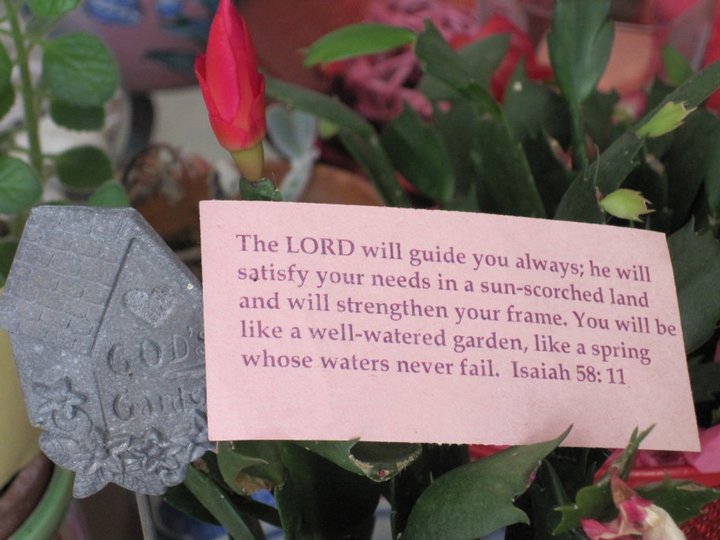 The LORD will guide you always; he will
satisfy your needs in a sun-scorched land
and will strengthen your frame. You will be
like a well-watered garden, like a spring
whose waters never fail. Isaiah 58: 11
GOD'S
Garde